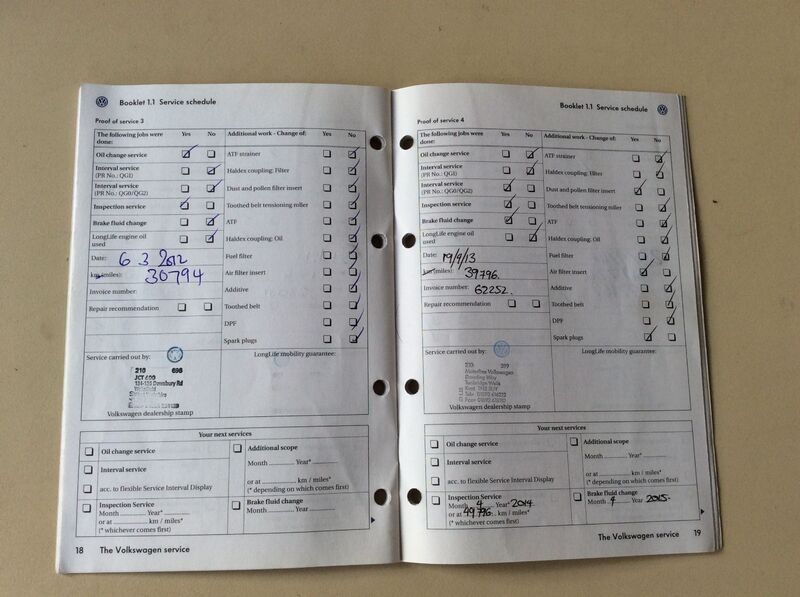 Booklet 1.1 Service schedule
Proof of service 3
The following jobs were done: Yes No
Oil change service
Interval service
(PR No.: QG1)
Interval service
(PR No.: QG0/QG2)
Inspection service
Brake fluid change
LongLife engine oil used
Date: 6 3 2012
km (miles): 30794
Invoice number:
Repair recommendation
Additional work - Change of: Yes No
ATF strainer
Haldex coupling: Filter
Dust and pollen filter insert
Toothed belt tensioning roller
ATF
Haldex coupling: Oil
Fuel filter
Air filter insert
Additive
Toothed belt
DPF
Spark plugs
Service carried out by:
210 698
JCT 600
Volkswagen dealership stamp
LongLife mobility guarantee:
Your next services
Oil change service
Interval service
acc. to flexible Service Interval Display
Inspection Service
Month Year*
or at km / miles*
(* whichever comes first)
Additional scope
Month Year*
or at km / miles*
(* depending on which comes first)
Brake fluid change
Month Year
18 The Volkswagen service
Booklet 1.1 Service schedule
Proof of service 4
The following jobs were done: Yes No
Oil change service
Interval service
(PR No.: QG1)
Interval service
(PR No.: QG0/QG2)
Inspection service
Brake fluid change
LongLife engine oil used
Date: 19/4/13
km (miles): 39796.
Invoice number: 62252.
Repair recommendation
Additional work - Change of: Yes No
ATF strainer
Haldex coupling: Filter
Dust and pollen filter insert
Toothed belt tensioning roller
ATF
Haldex coupling: Oil
Fuel filter
Air filter insert
Additive
Toothed belt
DPF
Spark plugs
Service carried out by:
Volkswagen
Tunbridge Wells
Kent
Volkswagen dealership stamp
LongLife mobility guarantee:
Your next services
Oil change service
Interval service
acc. to flexible Service Interval Display
Inspection Service
Month 4 Year* 2014
or at 49796 km / miles*
(* whichever comes first)
Additional scope
Month Year*
or at km / miles*
(* depending on which comes first)
Brake fluid change
Month 4 Year 2015.
The Volkswagen service 19